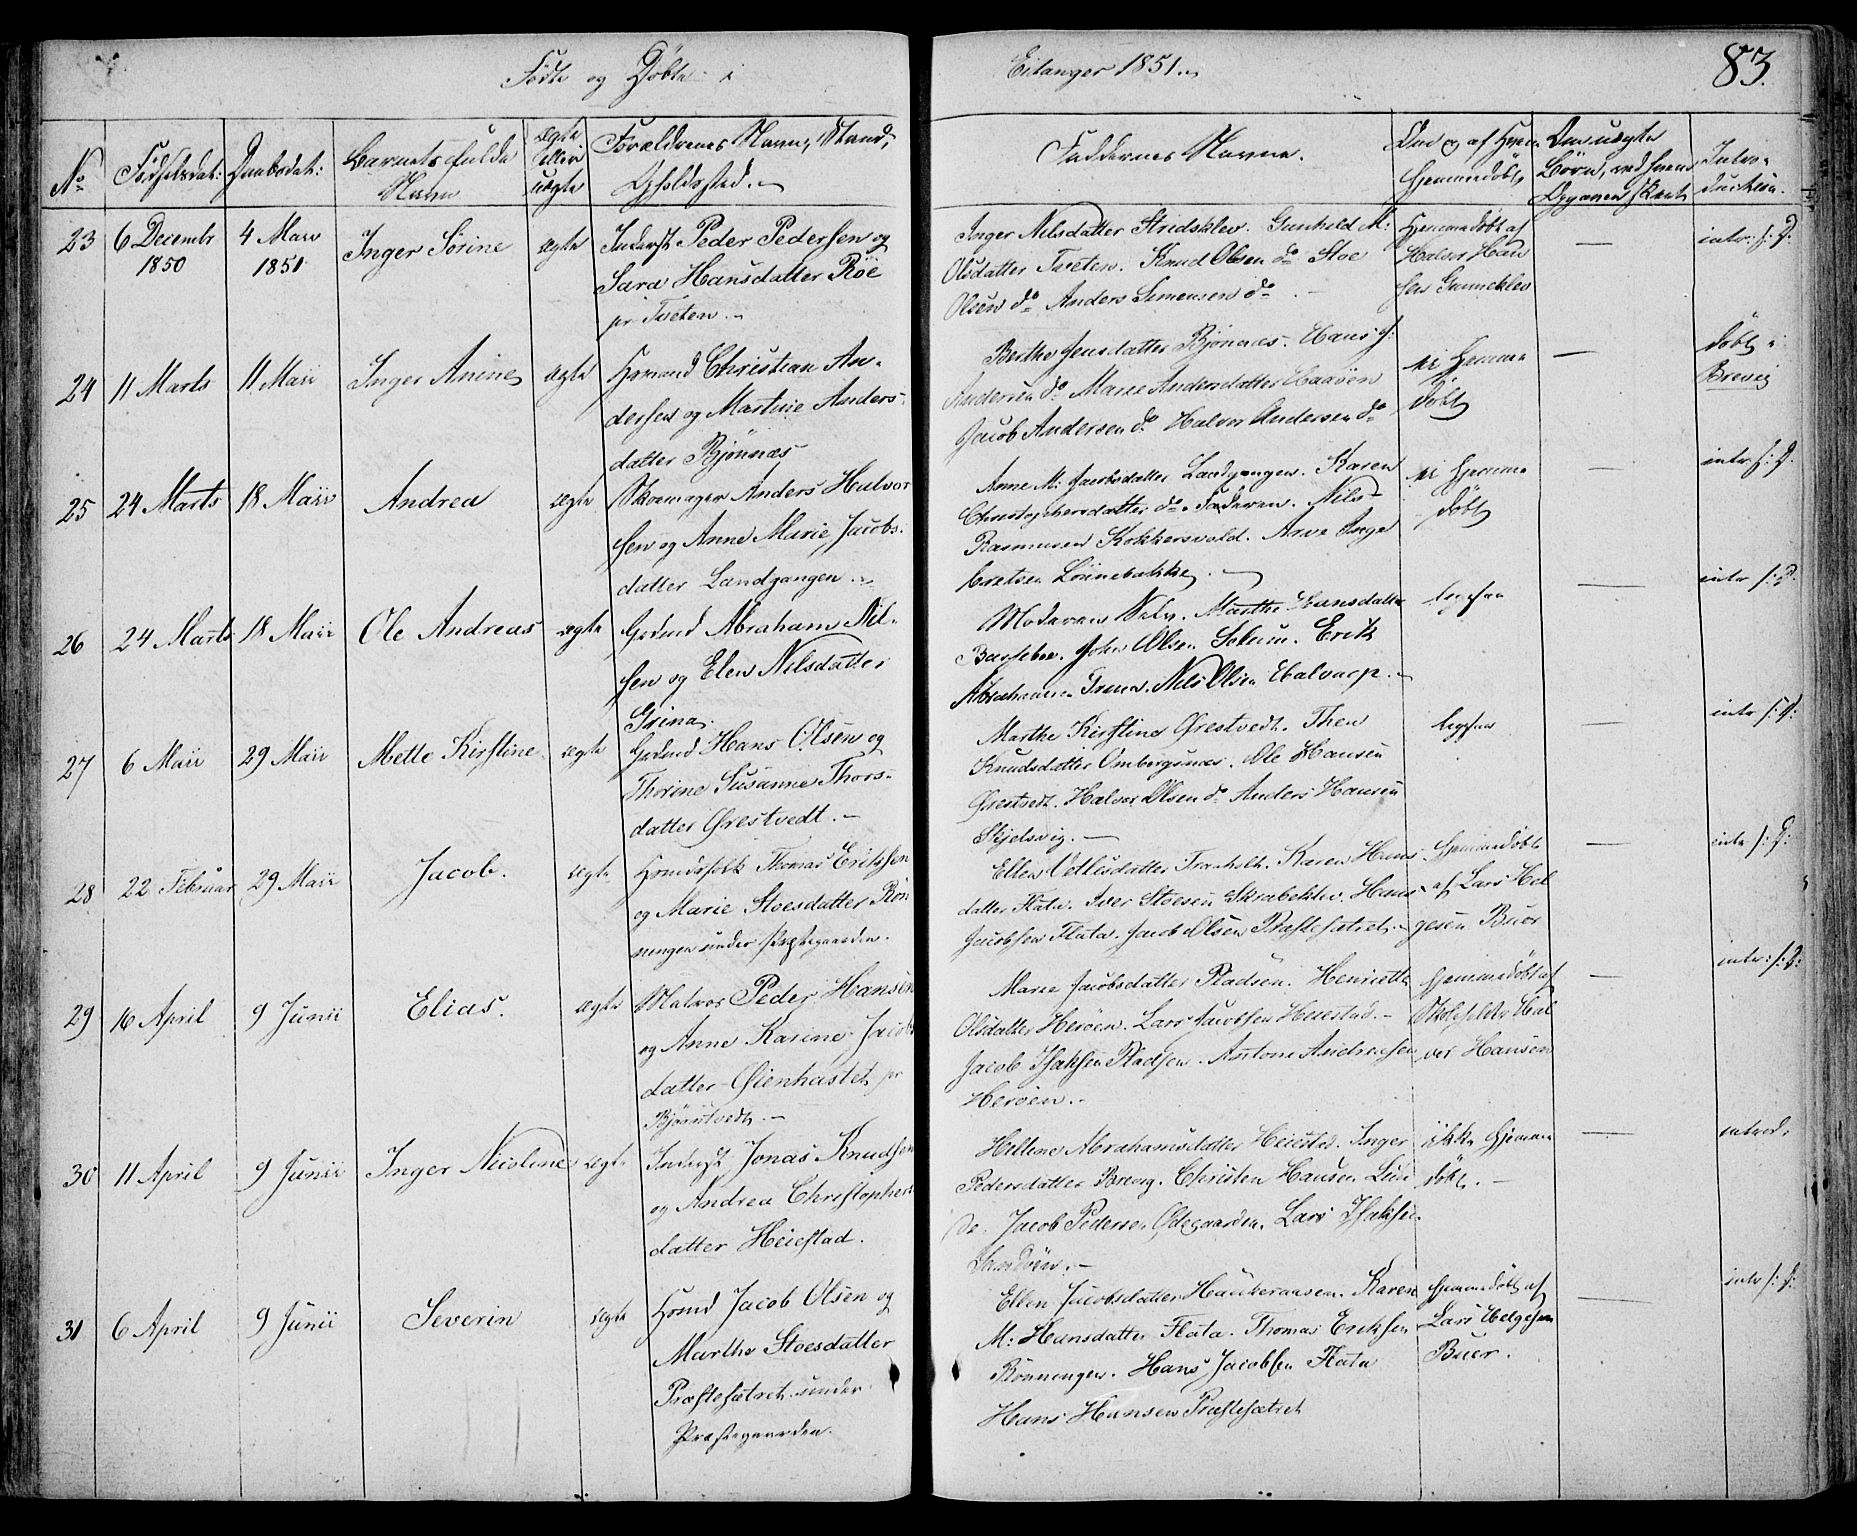 Fødte og Døbte i Eidanger 1851.
83.
No
Fødselsdat:
Daabsdat:
Barnets fulde
Navn
ægte
eller
uægte
Forældrenes Navn, Stand,
Opholdssted.
Faddernes Navne.
Om og af hvem
hjemmedøbt
Om uægte
Børn, ved hvem
Opgaven skeet
Intro-
duction.
23
6 Decembr
1850
4 Marv
1851
Inger Sørine
ægte
Inderst Peder Pedersen og
Sara Hansdatter Röe
pr Tveten.
Inger Nilsdatter Stridsklev. Gunhild M:
Olsdatter Tveten. Knud Olsen do Stoe
Olsen do Anders Simensen do
Hjemmedøbt af
Halvor Han
sen Gunneklev
intr: f: P.
24
11 Marts
11 Maii
Inger Anine
ægte
Hsmand Christian An-
dersen og Martine Anders-
datter Bjønnæs
Berthe Jensdatter Bjønnæs. Hans J:
Andersen do Maren Andersdatter Haaøen
Jacob Andersen do Halvor Andersen do
ei hjemme
døbt
døbt i
Brevig
25
24 Marts
18 Maii
Andrea
ægte
Skomager Anders Halvor
sen og Anne Marie Jacobs-
datter Landgangen.
Anne M: Jacobsdatter Landgangen. Karen
Christophersdatter do. Faderen. Nils
Rasmusen Kokkersvold. Arve Inge
bretsen Lønnebakke.
ei hjemme
døbt
intr f: P.
26
24 Marts
18 Maii
Ole Andreas
ægte
Grdmd Abraham Nil-
sen og Elen Nilsdatter
Grina.
Moderen Selv. Marthe Hansdatter
Bassebo. John Olsen Solum. Erik
Abrahamsen Nils Olsen
ligesaa
intr f: P.
27
6 Maii
29 Maii
Mette Kirstine
ægte
Grdmd Hans Olsen og
Thorine Susanne Thors-
datter Ørestvedt.
Marthe Kirstine Ørestvedt. Thea
Knudsdatter Ombergsnæs. Ole Hansen
Ørestvedt. Halvor Olsen do Anders Hansen
Skjelsvig.
ligesaa
intr f: P:
28
22 Februar
29 Maii
Jacob.
ægte
Hsmdsfolk Thomas Eriksen
og Marie Stoesdatter Røn
ningen under Præstegaarden.
Ellen Tronholt. Karen Hans
datter Flata. Iver Stoesen Skrabeklev. Hans
Jacobsen Flata. Jacob Olsen Præstesætret.
Hjemmedøbt
af Lars Hel
gesen Buer
intr f: P:
29
16 April
9 Junii
Elias.
ægte
Matros Peder Hansen
og Anne Karine Jacobs
datter Øienkastet pr
Bjørntvedt.
Maren Jacobsdatter Pladsen. Henriette
Olsdatter Herøen. Lars Jacobsen Heiestad.
Jacob Isaksen Pladsen. Antoni Andreasen
Herøen.
hjemmedøbt af
Skolehldr Hal
vor Hansen
intr: f: P:
30
11 April
9 Junii
Inger Nicoline
ægte
Inderst Jonas Knudsen
og Andrea Christophers
datter Heiestad.
Hellene Abrahamsdatter Heiestad. Inger
Pedersdatter Brevig. Christen Hansen Lun
de. Jacob Pedersen Ødegaarden. Lars Isaksen
Sandøen.
ikke hjemme
døbt.
introd.
31
6 April
9 Junii
Severin
ægte
Hsmd Jacob Olsen og
Marthe Stoesdatter
Præstesætret under
Præstegaarden.
Ellen Jacobsdatter Haukeraasen. Karen
M: Hansdatter Flata. Thomas Eriksen
Rønningen. Hans Jacobsen Flata
Hans Hansen Præstesætret
hjemmedøbt af
Lars Helgesen
Buer.
intr f: P: